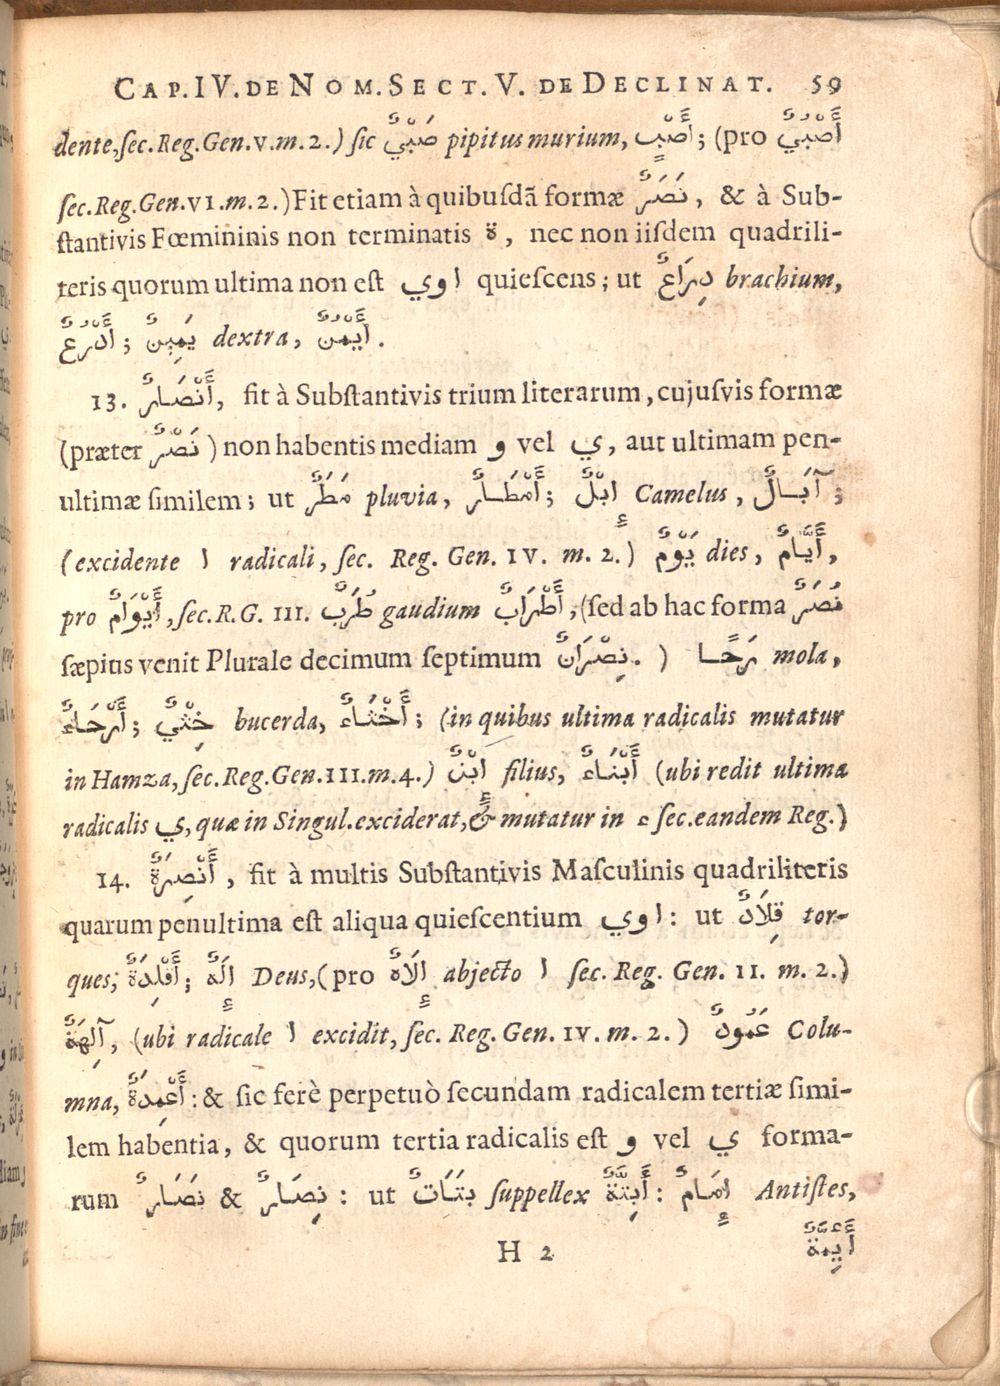 CAP. IV. DE NOM. SECT. V. DE DECLINAT. 59
dente, ſec. Reg. Gen. V. m. 2.) ſic صَبْيٌ pipitus murium, أَصْبٍ; (pro أَصْبُيٌ
ſec. Reg. Gen. VI. m. 2.) Fit etiam à quibuſdã formæ نَصَرٌ, & à Sub-
ſtantivis Fœmininis non terminatis ة, nec non iiſdem quadrili-
teris quorum ultima non eſt اوي quieſcens; ut ذِرَاعٌ brachium,
أَذْرُعٌ; يَمِينٌ dextra, أَيْمُنٌ.
13. أَنْصَارٌ, fit à Subſtantivis trium literarum, cujuſvis formæ
(præter نَصْرٌ) non habentis mediam و vel ي, aut ultimam pen-
ultimæ ſimilem; ut مَطَرٌ pluvia, أَمْطَارٌ; إِبْلٌ Camelus, آبَالٌ;
(excidente ا radicali, ſec. Reg. Gen. IV. m. 2.) يَوْمٌ dies, أَيَّامٌ,
pro أَيْوَامٌ, ſec. R. G. III. طُرَبٌ gaudium أَطْرَابٌ, (ſed ab hac forma نُصَرٌ
ſæpius venit Plurale decimum ſeptimum نِصْرَانٌ.) رَحًا mola,
أَرْحَاءٌ; خِثْيٌ bucerda, أَخْثَاءٌ; (in quibus ultima radicalis mutatur
in Hamza, ſec. Reg. Gen. III. m. 4.) إِبْنٌ filius, أَبْنَاءٌ (ubi redit ultima
radicalis ي, quæ in Singul. exciderat, & mutatur in ء ſec. eandem Reg.)
14. أَنْصِرَةٌ, fit à multis Subſtantivis Maſculinis quadriliteris
quarum penultima eſt aliqua quieſcentium اوي: ut قِلَادٌ tor-
ques; أَقْلِدَةٌ; إِلَهٌ Deus, (pro إِلَاهٌ abjecto ا ſec. Reg. Gen. II. m. 2.)
آلِهَةٌ, (ubi radicale ا excidit, ſec. Reg. Gen. IV. m. 2.) عَمُودٌ Colu-
mna, أَعْمِدَةٌ: & ſic ferè perpetuò ſecundam radicalem tertiæ ſimi-
lem habentia, & quorum tertia radicalis eſt و vel ي forma-
rum نَصَارٌ & نِصَارٌ: ut بَتَاتٌ ſuppellex أَبِتَّةٌ: إِمَامٌ Antiſtes,
H 2 أَيِمَّةٌ